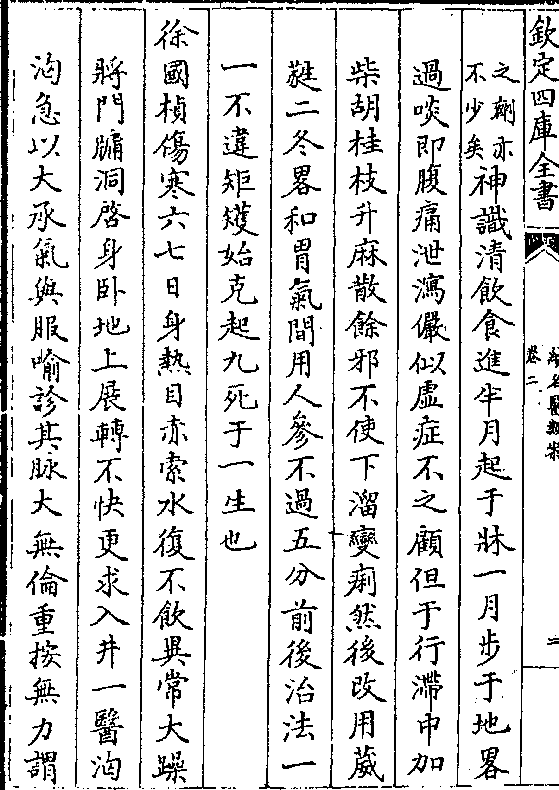 欽定四庫全書
續名醫類案
卷二
二
之劑亦不少矣神識清飲食進半月起于牀一月步于地畧
過啖即腹痛泄瀉儼似虛症不之顧但于行滯中加
柴胡桂枝升麻散餘邪不使下溜變痢然後改用葳
蕤二冬畧和胃氣間用人參不過五分前後治法一
一不違矩矱始克起九死于一生也
徐國楨傷寒六七日身熱目赤索水復不飲異常大躁
將門牖洞啓身卧地上展轉不快更求入井一醫洶
洶急以大承氣與服喻診其脉大無倫重按無力謂